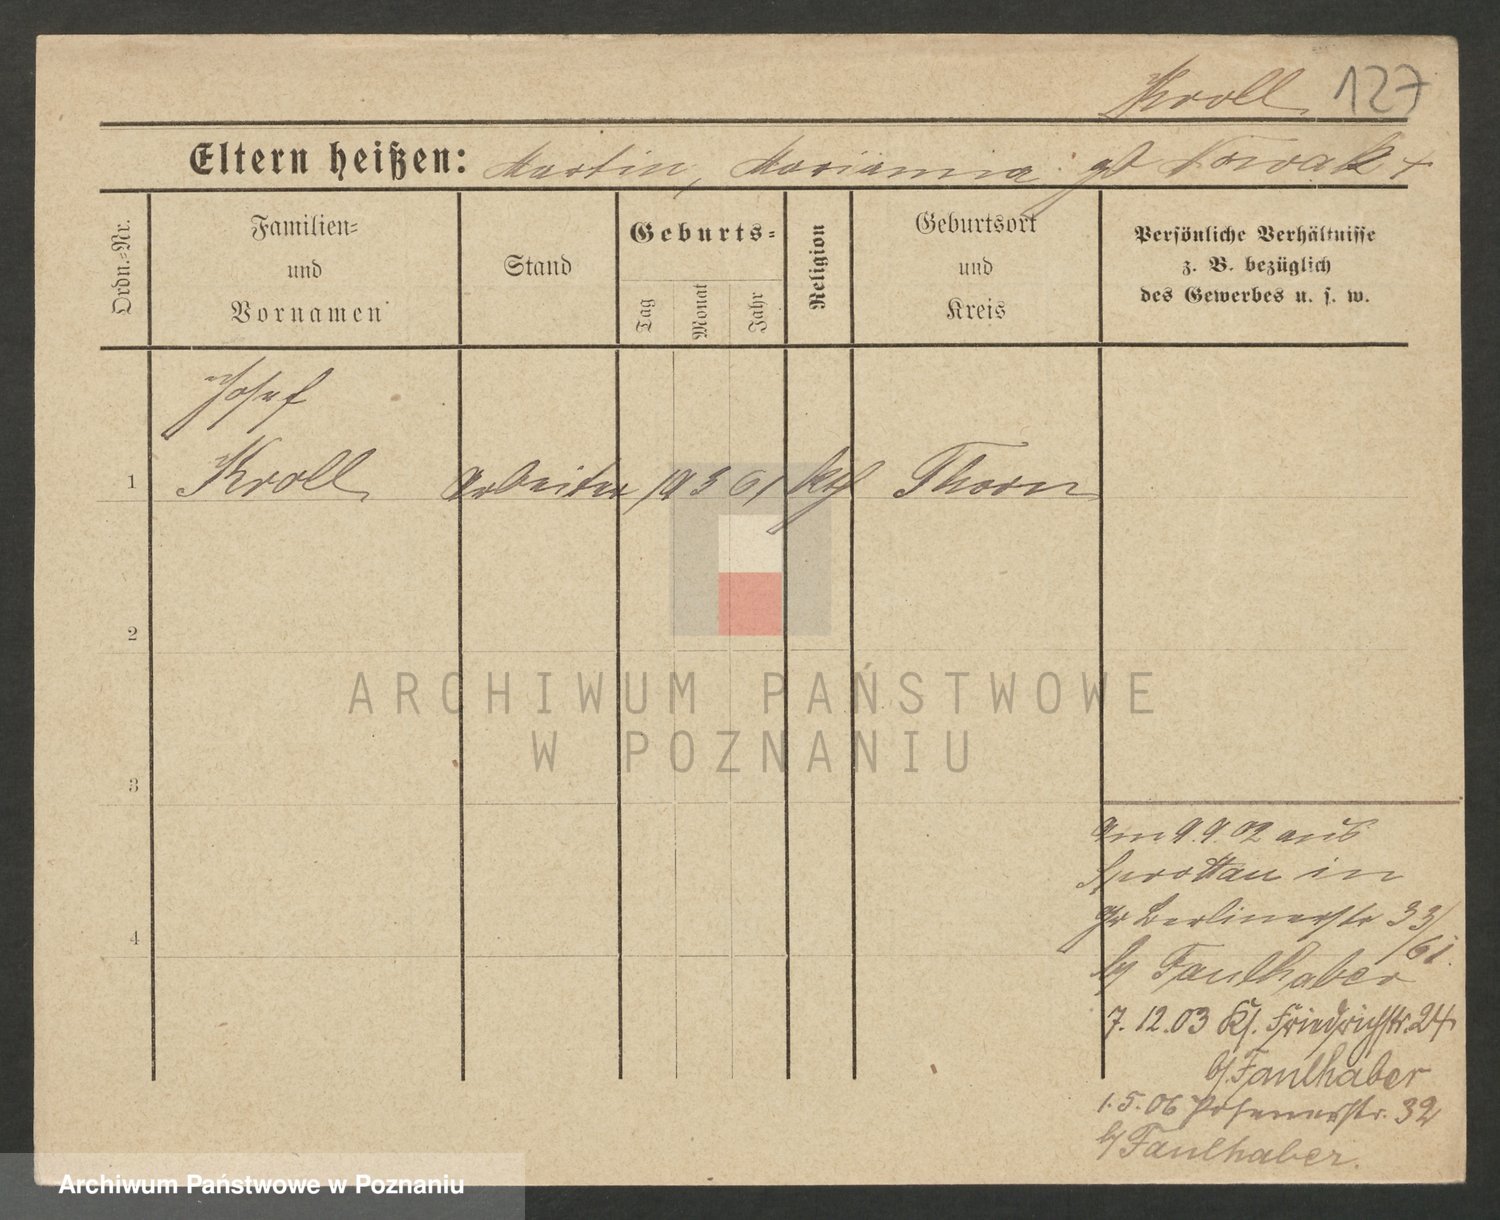 Kroll 127
Eltern heißen: Martin, Marianna gb Nowak +
Ordn.-Nr.
Familien-
und
Vornamen
Stand
Geburts-
Tag
Monat
Jahr
Religion
Geburtsort
und
Kreis
Persönliche Verhältnisse
z. B. bezüglich
des Gewerbes u. s. w.
Josef
1 Kroll Arbeiter 19 3 61 kth Thorn
2
3
4
ARCHIWUM PAŃSTWOWE
W POZNANIU
Am 9.9.02 aus
Sprottau in
Gr Berlinerstr 33/
61.
bj Faulhaber
7.12.03 Kl. Friedrichstr. 24
bj. Faulhaber
1.5.06 Posenerstr. 32
bj Faulhaber.
Archiwum Państwowe w Poznaniu